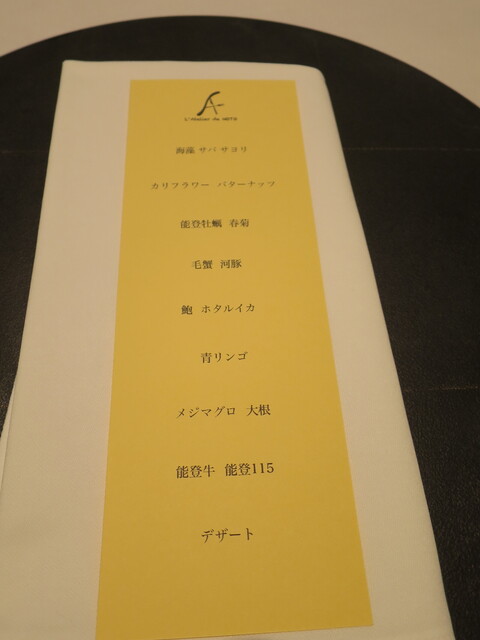 A
L'Atelier de NOTO
海藻 サバ サヨリ
カリフラワー バターナッツ
能登牡蠣 春菊
毛蟹 河豚
鮑 ホタルイカ
青リンゴ
メジマグロ 大根
能登牛 能登115
デザート